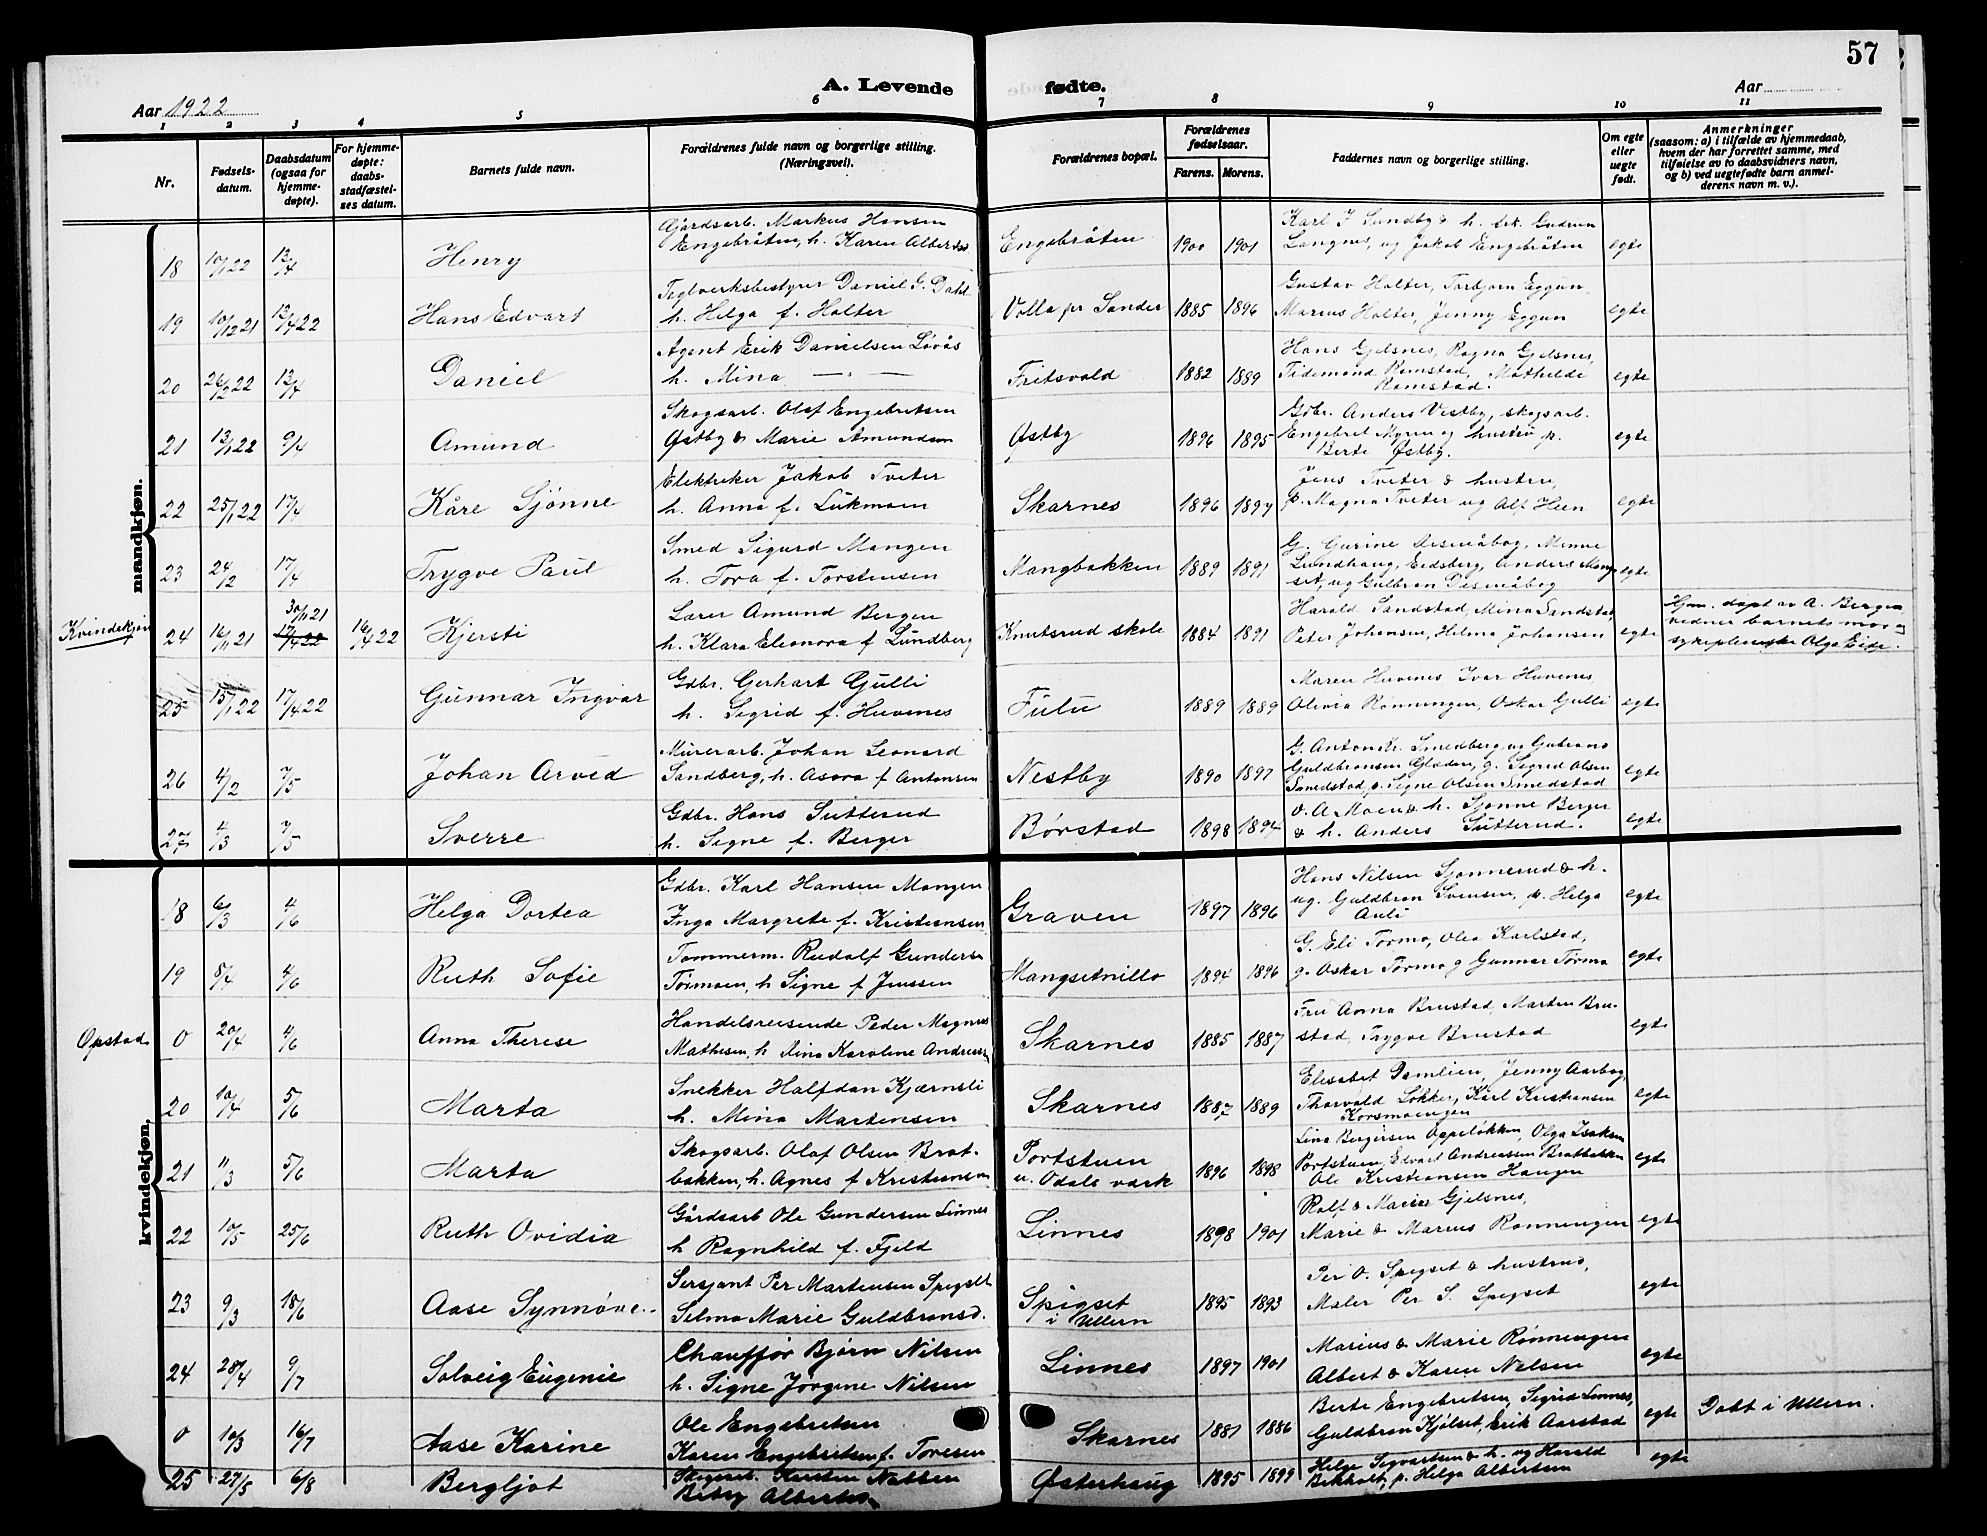 57
A. Levende fødte.
Aar 1922
Aar
1 2 3 4 5 6 7 8 9 10 11
Nr.
Fødsels-
datum.
Daabsdatum
(ogsaa for
hjemme-
døpte).
For hjemme-
døpte:
daabs-
stadfæstel-
ses datum.
Barnets fulde navn.
Forældrenes fulde navn og borgerlige stilling.
(Næringsvei).
Forældrenes bopæl.
Forældrenes
fødselsaar.
Farens. Morens.
Faddernes navn og borgerlige stilling.
Om egte
eller
uegte
født.
Anmerkninger
(saasom: a) i tilfælde av hjemmedaab,
hvem der har forrettet samme, med
tilføielse av to daabsvidners navn,
og b) ved uegtefødte barn anmel-
derens navn m. v.).
mandkjøn.
18 10/1 22 13/4 Henry
Gårdsarb. Markus Hansen
Engebråten, h. Karen
Engebråten 1900 1901
Karl J Sundby & h. frk. Gudrun
Langnes, og Jakob Engebråten
egte
19 10/12 21 13/4 22 Hans Edvart
Teglverksbestyrer Daniel G. Dahl
h. Helga f. Holter
Volla pr Sander 1885 1896
Gustav Holter, Torbjørn Eggun,
Marius Holter, Jenny Eggun
egte
20 26/2 22 13/4 Daniel
Agent Erik Danielsen Løvås
h. Mina — " —
Fritsvold 1882 1889
Hans Gjelsnes, Ragna Gjelsnes,
Tidemand Ramstad, Mathilde
Ramstad.
egte
21 13/1 22 9/4 Amund
Skogsarb. Olaf Engebretsen
Østby & Marie Amundsen
Østby 1896 1895
Gdbr. Anders Vestby, skogsarb.
Engebret Myren og hustru p.
Berte Østby.
egte
22 25/1 22 17/4 Kåre Sjönne
Elektriker Jakob Tveter
h. Anna f. Lukmoen
Skarnes 1896 1897
Jens Tveter & hustru,
p. Magna Tveter og Alf Heen
egte
23 24/2 17/4 Trygve Paul
Smed Sigurd Mangen
h. Tora f. Torstensen
Mangbakken 1889 1891
G. Gurine Disenåbog, Minne
Lundhaug, Eidsberg, Anders Mang-
set, og Gulbran Disenåbog
egte
Kvindekjøn
24 16/11 21 30/11 21 17/4 22 16/4 22 Kjersti
Lærer Amund Bergen
h. Klara Eleonora f Lundberg
Knutsrud skole 1884 1891
Harald Sandstad, Mina Sandstad
Peter Johansen, Helma Johansen
egte
Hjm. døpt av A. Bergen
vidner barnets mor og
sykepleierske Olga Eide.
25 15/1 22 17/4 22 Gunnar Ingvar
Gdbr. Gerhart Gulli
h. Sigrid f. Huvenes
Fulu 1889 1889
Maren Huvenes Ivar Huvenes
Olivia Rønningen, Oskar Gulli
egte
26 4/2 7/5 Johan Arvid
Murerarb. Johan Leonard
Sandberg, h. Asora f Antonsen
Nestby 1890 1897
G. Anton Kr. Smedberg
Guldbransen g. Sigrid Olsen
Smedstad, p. Signe Olsen Smedstad
egte
27 4/3 7/5 Sverre
Gdbr. Hans Sutterud
h. Signe f. Berger
Børstad 1898 1894
O. A Moen & h. Sjønne Berger
& h. Anders Sutterud.
egte
kvindekjøn.
18 6/3 4/6 Helga Dortea
Gdbr. Karl Hansen Mangen
Inga Margrete f. Kristiansen
Graven 1897 1896
Hans Nilsen Sjønnerud & h.
ug. Guldbran Svensen, p. Helga
Auli
egte
19 8/4 4/6 Ruth Sofie
Tømmerm. Rudolf Gundersen
Tørmoen, h Signe f Jenssen
Mangsetnillo 1894 1896
G. Eli Tormo, Olea Karlstad,
g. Oskar Tormo g Gunnar Tormo
egte
Opstad
0 20/4 4/6 Anna Therese
Handelsreisende Peder Magnus
Mathisen, h Lina Karoline Andreasen
Skarnes 1885 1887
Fru Anna Brustad, Marten Bru-
stad, Trygve Brustad
egte
20 10/4 5/6 Marta
Snekker Halfdan Kjærnsli
h. Mina Martensen
Skarnes 1887 1889
Elisabet Damlien, Jenny Aarbog,
Thorvald Løkker, Karl Kristiansen
Korsmoengen
egte
21 11/3 5/6 Marta
Skogsarb. Olaf Olsen Brat-
bakken, h. Agnes f Kristiansen
Portstuen
u. Odals værk 1896 1898
Lina Bergersen Oppeløkken, Olga Isaksen
Portstuen, Edvart Andreassen Bratbakken
Ole Kristiansen Haugen
egte
22 10/5 25/6 Ruth Ovidia
Gårdsarb Ole Gundersen Linnes
h Ragnhild f. Fjeld
Linnes 1898 1901
Rolf & Marie Gjelsnes,
Marie & Marius Rønningen
egte
23 9/3 18/6 Aase Synnøve
Sersjant Per Martensen Spigset
Selma Marie Guldbransd.
Spigset
i Ullern 1895 1893
Per O. Spigset & hustru,
Maler Per S. Spigset
egte
24 28/4 9/7 Solveig Eugenie
Chauffør Bjørn Nilsen
h. Signe Jørgine Nilsen
Linnes 1897 1901
Marius & Marie Rønningen
Albert & Karen Nilsen
egte
0 10/3 16/7 Aase Karine
Ole Engebretsen
Karen Engebretsen f. Toresen
Skarnes 1881 1886
Berte Engebretsen, Sigrid Linnes,
Guldbran Kjølset, Erik Aarstad
egte
Døbt i Ullern.
25 27/5 6/8 Bergljot
Skogsarb. Karsten Nabben
Betsy Albertsen
Østerhaug 1895 1899
Helge Sigvartsen & h. og Harald
Bekholt, p. Helga Albertsen
egte